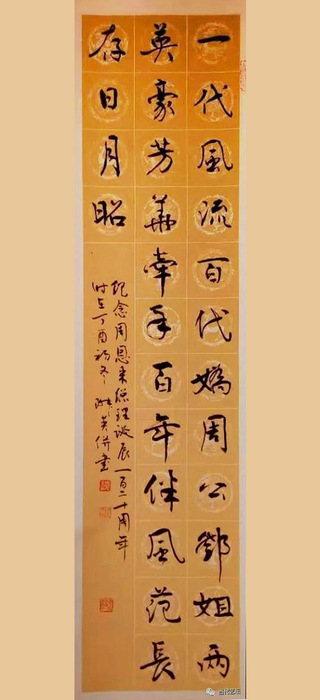 一代風流百代嬌周公鄧姐兩
英豪芳華牽手百年伴風范長
存日月昭
纪念周恩来總理诞辰一百二十周年
时在丁酉初冬英併書